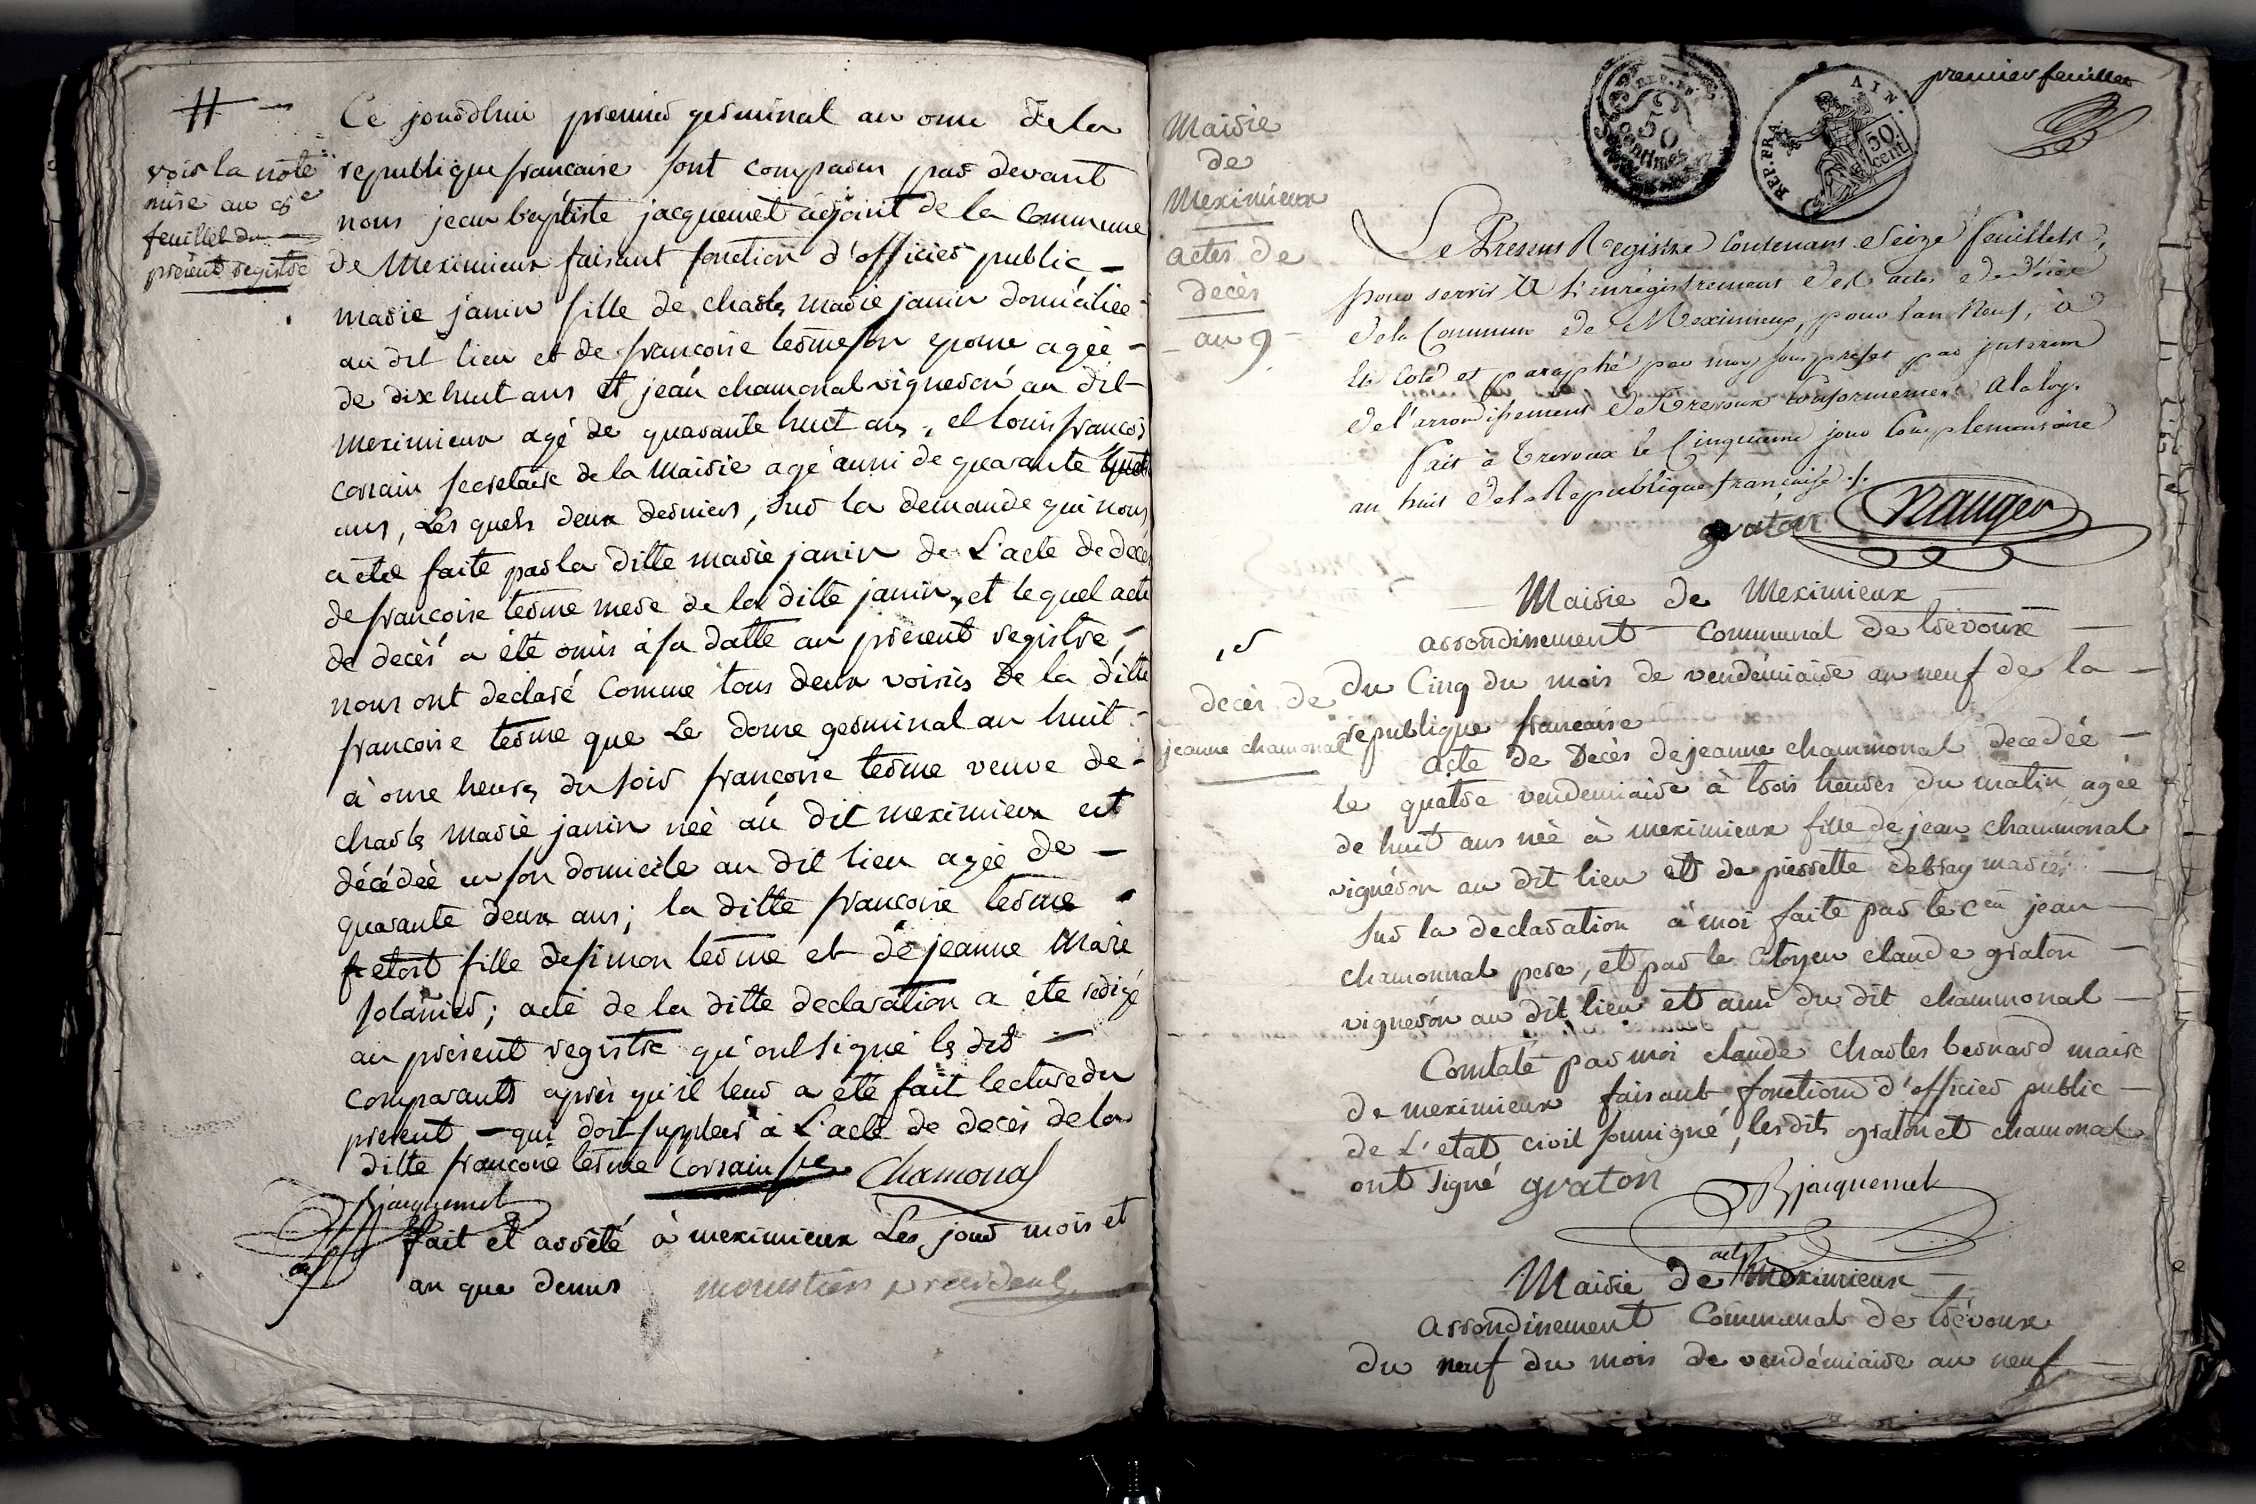 #
voir la note
mise au
feuillet du
présent registre
Ce jourdhui premier germinal an onze de la
republique francaise sont comparus par devant
nous jean baptiste jacquemet adjoint de la commune
de Meximieux faisant fonction d'officier public -
marie janin fille de charles marie janin domiciliée
au dit lieu et de francoise terme son epouse agée -
de dixhuit ans et jean chamonal vigneron au dit
meximieux agé de quarante huit ans, et louis francois
corsain secretaire de la Mairie agé aussi de quarante huit
ans, Les quels deux derniers, sur la demande qui nous
a été faite par la ditte marie janin de L'acte de décès
de francoise terme mere de la ditte janin, et le quel acte
de decès a été omis à sa datte au présent registre,
nous ont declaré comme tous deux voisins de la ditte
francoise terme que Le douze germinal an huit -
à onze heures du soir francoise terme veuve de -
charles marie janin née au dit meximieux est
décédée en son domicile au dit lieu agée de -
quarante deux ans; la ditte francoise terme
étoit fille de simon terme et de jeanne Marie
; acte de la ditte declaration a été redigé
au présent registre qu'ont signé les dits
comparants après qu'il leur a été fait lecture du
présent - qui doit suppléer à L'acte de decès de la
ditte francoise terme Corsain sre Chamonal
Bjacquemet
fait et arrêté à meximieux Les jour mois et
an que dessus
premier feuillet
REP. FRA. 50 centimes
REP. FRA. AIN. 50 cent.
Mairie
de
Meximieux
actes de
decès
an 9
Le Present Registre Contenant Seize feuillets,
pour servir à L'enregistrement des actes de décès
de la Commune de Meximieux, pour l'an Neuf, a
été coté et paraphé par moy sous prefet par interim
de l'arrondissement de Trevoux conformement à la loy.
fait à Trevoux le Cinquieme jour Complementaire
an huit de la Republique francaise ./.
graton
Mairie de Meximieux
arrondissement communal de trévoux
decès de
jeanne chamonal
du cinq du mois de vendémiaire an neuf de la -
république francaise
acte de Decès de jeanne chammonal decedée -
le quatre vendemiaire à trois heures du matin agée
de huit ans née à meximieux fille de jean chammonal
vignéron au dit lieu et de pierrette debray mariés -
sur la declaration à moi faite par le cen jean -
chamonnal pere, et par le citoyen claude graton -
vigneron au dit lieu et ami du dit chammonal -
Constaté par moi claude charles bernard maire
de meximieux faisant fonction d'officier public -
de L'etat civil soussigné, les dits graton et chamonal
ont signé graton Bjacquemet
adjt
Mairie de Meximieux -
arrondissement communal de trévoux
du neuf du mois de vendémiaire an neuf -